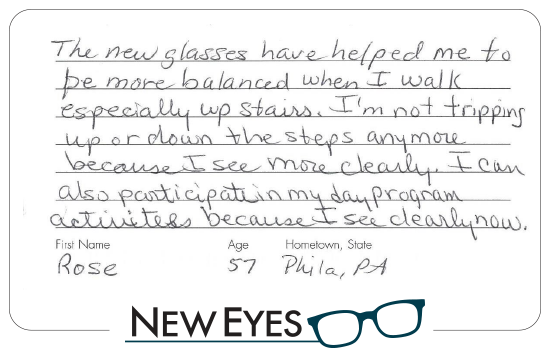 The new glasses have helped me to
be more balanced when I walk
especially up stairs. I'm not tripping
up or down the steps anymore
because I see more clearly. I can
also participate in my day program
activitess because I see clearly now.
First Name Age Hometown, State
Rose 57 Phila, PA
NEW EYES